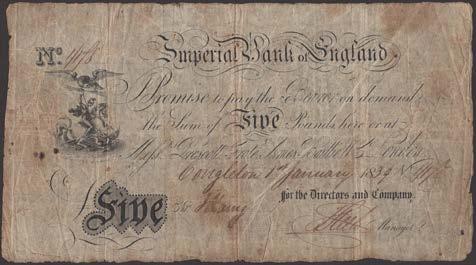 No.
Imperial Bank of England
I Promise to pay the Bearer on demand
the Sum of Five Pounds here or at
Mess.rs London
Congleton 1st January 183
for the Directors and Company
Five
Manager